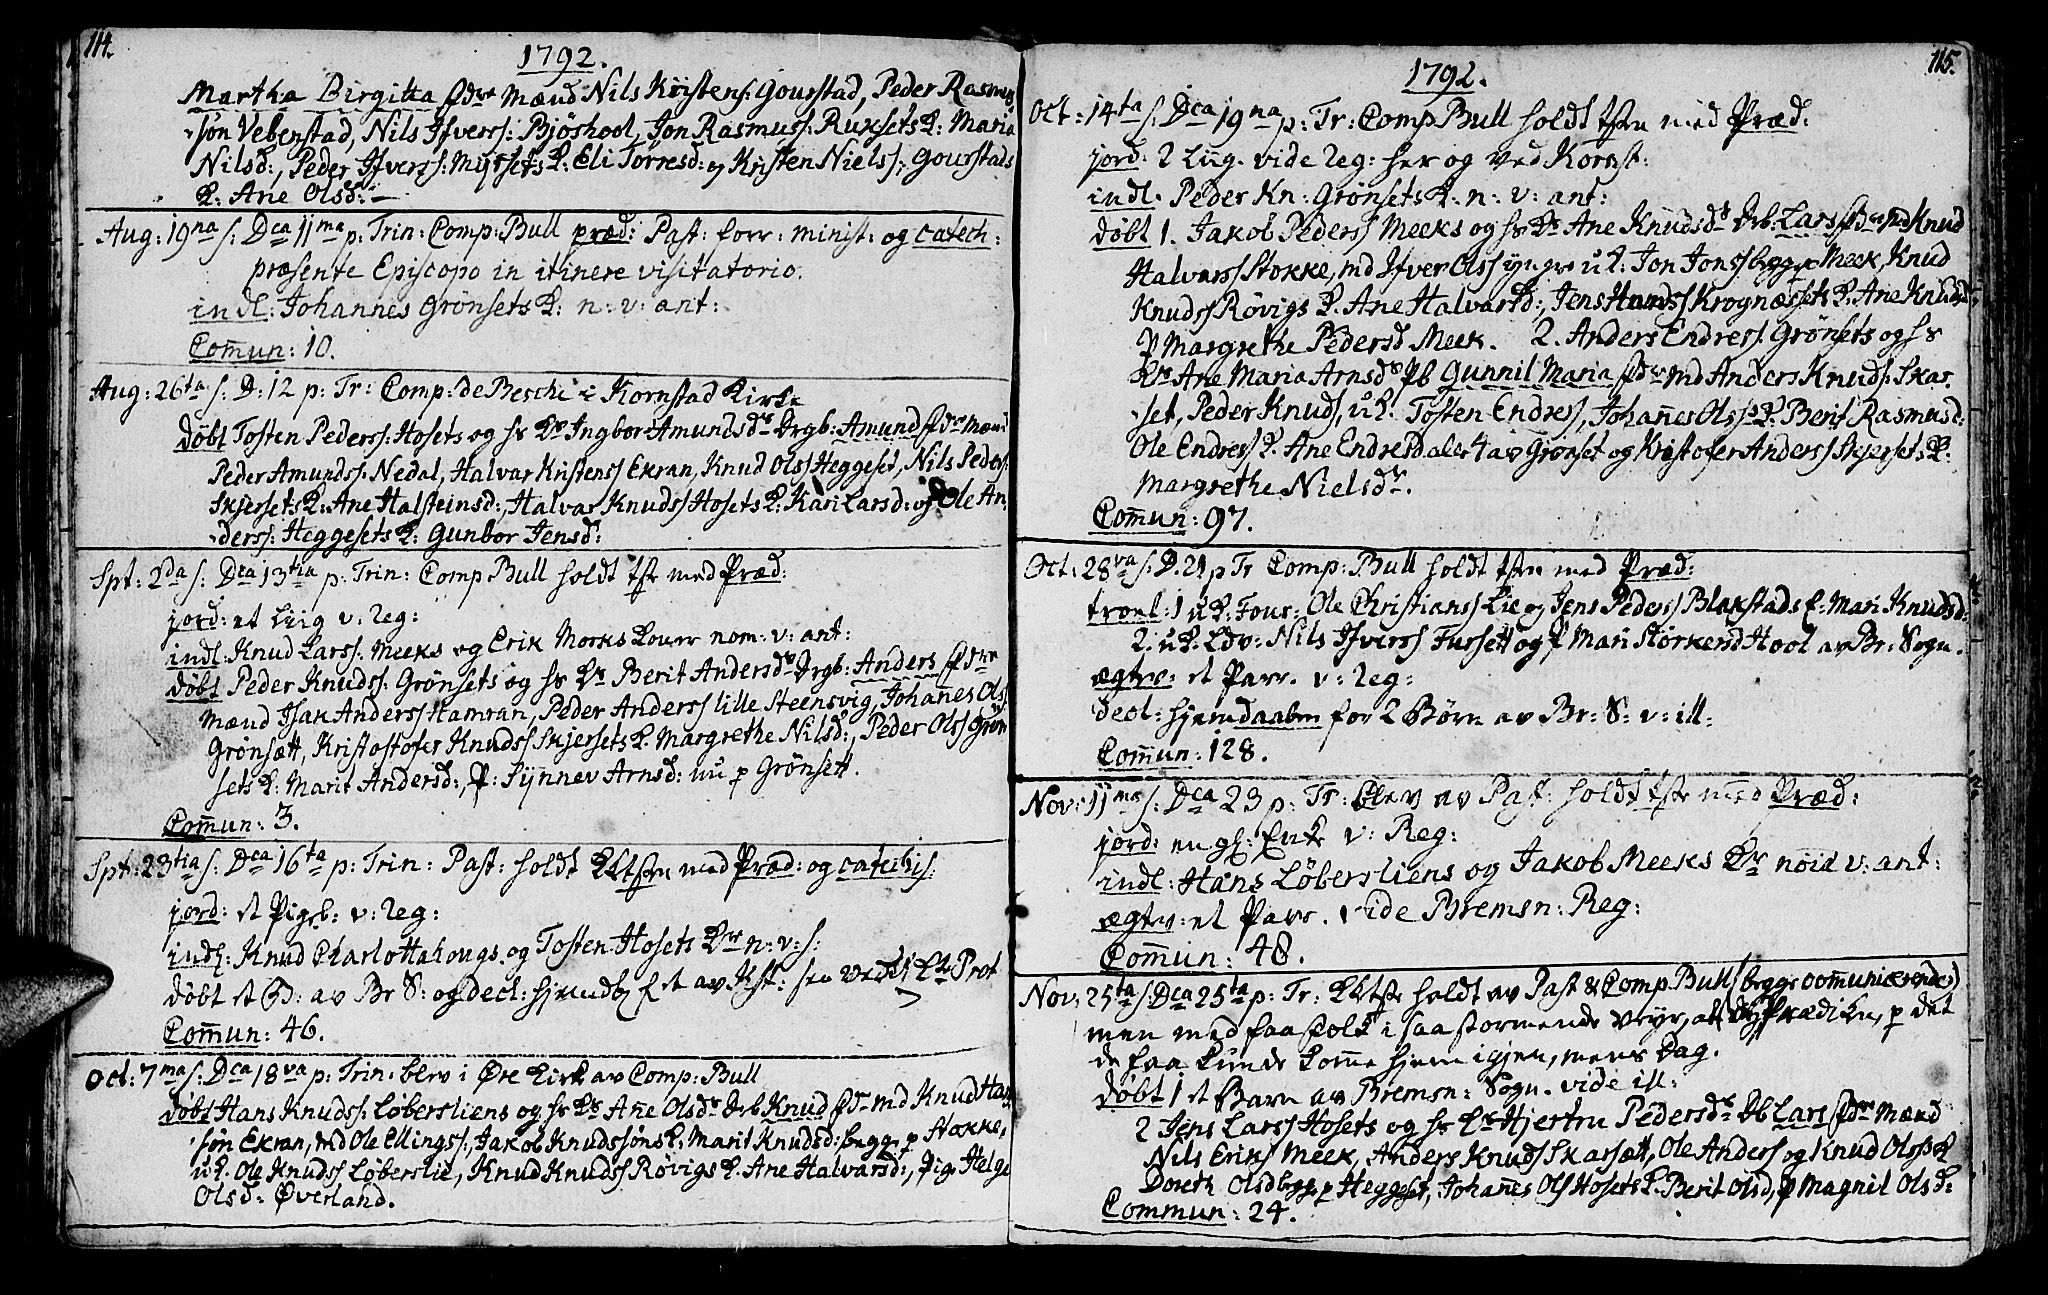 114.
1792.
Martha Birgitta fdre Mænd Nils Kristens: Gourstad, Peder Rasmus
søn Vebenstad, Nils Ifvers: Bjøshool, Jon Rasmuss: Ruxsets K: Maria
Nilsd:, Peder Ifvers: Myrsets K: Eli Torresd: og Kristen Niels: Gourstads
K: Ane Olsd:
Aug: 19na s: Dca 11ma p: Trin: Comp: Bull præd: Past: forr: minist: og catech:
præsente Episcopo in itinere visitatorio.
indl: Johannes Grønsets K: n: v: ant:
Com̄un: 10.
Aug: 26ta s: D: 12 p: Tr: Comp: de Besche i Kornstad Kirke
døbt Tosten Peders: Hosets og hs Ks Ingbor Amundsdr Drgb: Amund fdre Mænd
Peder Amunds: Nedal, Halvar Kristens Ekran, Knud Ols Heggeset, Nils Peders:
Skjersets K: Ane Halsteinsd:, Halvar Knuds Hosets K: Kari Larsd: og Ole An-
ders: Heggesets K: Gunbor Jensd:
Spt: 2da s: Dca 13tia p: Trin: Comp Bull holdt tste med Præd:
jord: et Liig v: Reg:
indl: Knud Lars: Meeks og Erik Morks Koner nom: v: ant:
døbt Peder Knuds: Grønsets og hs Ks Berit Andersdr Drgb: Anders fdre
Mænd Isak Anders Hamran, Peder Anders lille Steensvig, Johan̄es Ols
Grønsætt, Kristofer Knuds Skjersets K. Margrethe Nilsd:, Peder Ols Grøn
sets K: Marit Andersd:, P: Synnev Arnsd: nu p Grønsett.
Com̄un: 3.
Spt: 23tia s: Dca 16ta p: Trin: Past: holdt tste med Præd: og catechis:
jord: et Pigeb: v: Reg:
indl: Knud Charlottahougs og Tosten Hosets Kr n: v: s:
døbt et B: av Br S: og decl: hjemdb f et av Kst:
Com̄un: 46.
Oct: 7ma s: Dca 18va p: Trin: blev i Øre Kirke av Comp: Bull
døbt Hans Knuds: Løbersliens og hs Ks Ane Olsdr Drb Knud fdre md Knud Hans
søn Ekran, md Ole Ellings:, Jakob Knudssøns K: Marit Knudsd: begge p Stokke,
uK. Ole Knuds Løberslie, Knud Knuds Røvigs K. Ane Halvarsd:, Pig: Helge
Olsd: Øverland.
115.
1792.
Oct: 14ta s: Dca 19na p: Tr: Comp Bull holdt tste med Præd:
jord: 2 Liig. vide Reg: her og ved Kornst:
indl. Peder Kn: Grønsets K: n: v: ant:
døbt 1. Jakob Peders Meeks og hs Ks Ane Knudsdr Drb: Lars fdre md Knud
Halvars Stokke, md Ifver Ols yngre uK: Jon Jons begge p Meek, Knud
Knuds Røvigs K. Ane Halvarsd:, Jens Hans Krognæssets K. Ane Knudsd
P Margrethe Pedersd Meek. 2. Anders Endres: Grønsets og hs
Ks Ane Maria Arnsdr Pb Gunnil Maria fdre md Anders Knuds: Skar
set, Peder Knuds, uK: Tosten Endres, Johan̄es Ols K: Berit Rasmusd:
Ole Endres K. Ane Endresd alle 4 av Grønset og Kristofer Anders Skjersets K:
Margrethe Nielsdr.
Com̄un: 97.
Oct: 28va s: D. 21 p Tr Comp: Bull holdt tste med Præd:
trovl: 1 uK: Four: Ole Christians Lie og Jens Peders Blakstads E: Mari Knudsd:
2. uK: Ldv: Nils Ifvers Fursett og P Mari Størkersd Hool av Br: Sogn.
ægtev: et Parr. v: Reg:
decl: hjemdaaben for 2 Børn av Br: S: v: ill:
Com̄un: 128.
Nov: 11ma s: Dca 23 p: Tr: blev av Past: holdt tste med Præd:
jord: en gl: Enke v: Reg:
indl: Hans Løbersliens og Jakob Meeks Kr v: ant:
ægtev: et Parr. vide Bremsn: Reg:
Com̄un: 48.
Nov: 25ta s Dca 25ta p: Tr: tste holdt av Past & Comp Bull (begge communicerende)
men med faa folk i saa stormende Veyr, at Prædiken, p det
de faa kunde kom̄e hjem igjen, mens Dag.
døbt 1 et Barn av Bremsn: Sogn. vide ill:
2 Jens Lars Hosets og hs Ks Hjertru Pedersdr Db Lars fdre Mænd
Nils Eriks Meek, Anders Knuds Skarsætt, Ole Anders og Knud Ols K
Doreth Olsd begge p Heggeset, Johan̄es Ols Hosets K. Berit Olsd, P Magnil Olsd:
Commun: 24.